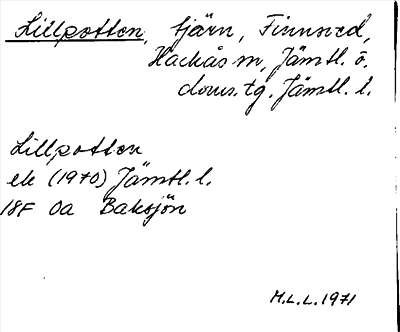 Lillpotten, tjärn, Finnsved,
Hackås sn, Jämtl. ö.
doms.tg. Jämtl. l.
Lillpotten
ek (1970) Jämtl. l.
18F 0a Baksjön
H.L.L. 1971